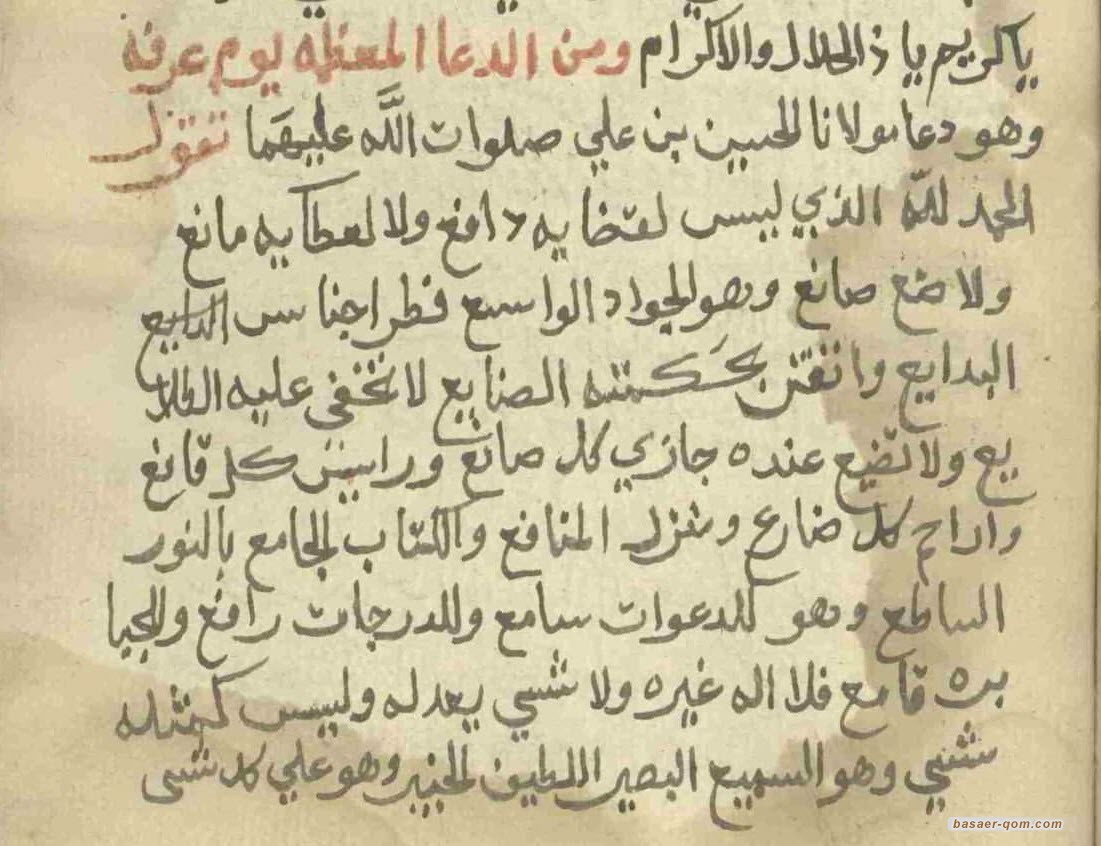 ياكريم يا ذ الجلال والاكرام ومن الدعا المعظمه يوم عرفه
وهو دعا مولانا الحسين بن علي صلوات اللَّه عليهَما تقول
الحمد للّه الذي ليس لقضايه دافع ولا لعطايه مانع
ولا صانع وهو الجواد الواسع فطر اجناس
البدايع واتقن بحَكمته الصنايع لا تخفى عليه الطلا
يع ولا تضيع عنده جازي كل صانع ورايش كل قانع
وراحم كل ضارع ومنزل المنافع والكتاب الجامع بالنور
الساطع وهو للدعوات سامع وللدرجات رافع وللجبا
بره قامع فلا اله غيره ولا شي يعدله وليس كمثله
شي وهو السميع البصير اللطيف الخبير وهو علي كل شى
basaer-qom.com